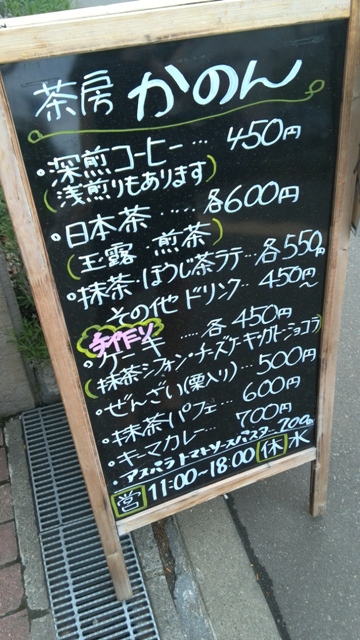 茶房 かのん
・深煎コーヒー… 450円
(浅煎りもあります)
・日本茶…‥各600円
(玉露・煎茶)
・抹茶・ほうじ茶ラテ…各550円
その他ドリンク…450円〜
手作り
・ケーキ……各450円
(抹茶シフォン・チーズケーキ・ガトーショコラ)
・ぜんざい(栗入り)…500円
・抹茶パフェ…600円
・キーマカレー…700円
・アスパラトマトソースパスタ…700円
営 11:00〜18:00 休 水